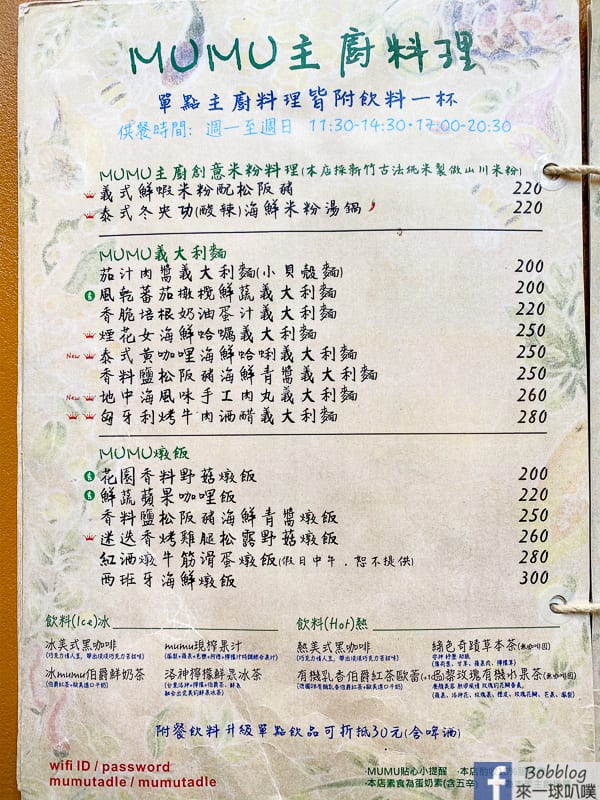 MUMU主廚料理
單點主廚料理皆附飲料一杯
供餐時間: 週一至週日 11:30-14:30・17:00-20:30
MUMU主廚創意米粉料理(本店採新竹古法純米製做山川米粉)
義式鮮蝦米粉配松阪豬 220
泰式冬炎功(酸辣)海鮮米粉湯鍋 220
MUMU義大利麵
茄汁肉醬義大利麵(小貝殼麵) 200
風乾蕃茄橄欖鮮蔬義大利麵 200
香脆培根奶油蛋汁義大利麵 220
煙花女海鮮蛤蠣義大利麵 250
New 泰式黃咖哩海鮮蛤蜊義大利麵 250
香料鹽松阪豬海鮮青醬義大利麵 250
New 地中海風味手工肉丸義大利麵 260
匈牙利烤牛肉酒醋義大利麵 280
MUMU燉飯
花園香料野菇燉飯 200
鮮蔬蘋果咖哩飯 220
香料鹽松阪豬海鮮青醬燉飯 250
迷迭香烤雞腿松露野菇燉飯 260
紅酒燉牛筋滑蛋燉飯(假日中午，恕不提供) 280
西班牙海鮮燉飯 300
飲料(Ice)冰
冰美式黑咖啡
mumu現榨果汁
冰mumu伯爵鮮奶茶
洛神檸檬鮮果冰茶
飲料(Hot)熱
熱美式黑咖啡
綠色奇蹟草本茶(無咖啡因)
有機乳香伯爵紅茶歐蕾
玫瑰有機水果茶(無咖啡因)
附餐飲料升級單點飲品可折抵30元(含啤酒)
wifi ID / password
mumutadle / mumutadle
·MUMU貼心小提醒 ·本店
·本店素食為蛋奶素(含五辛)
f Bobblog
來一球叭噗